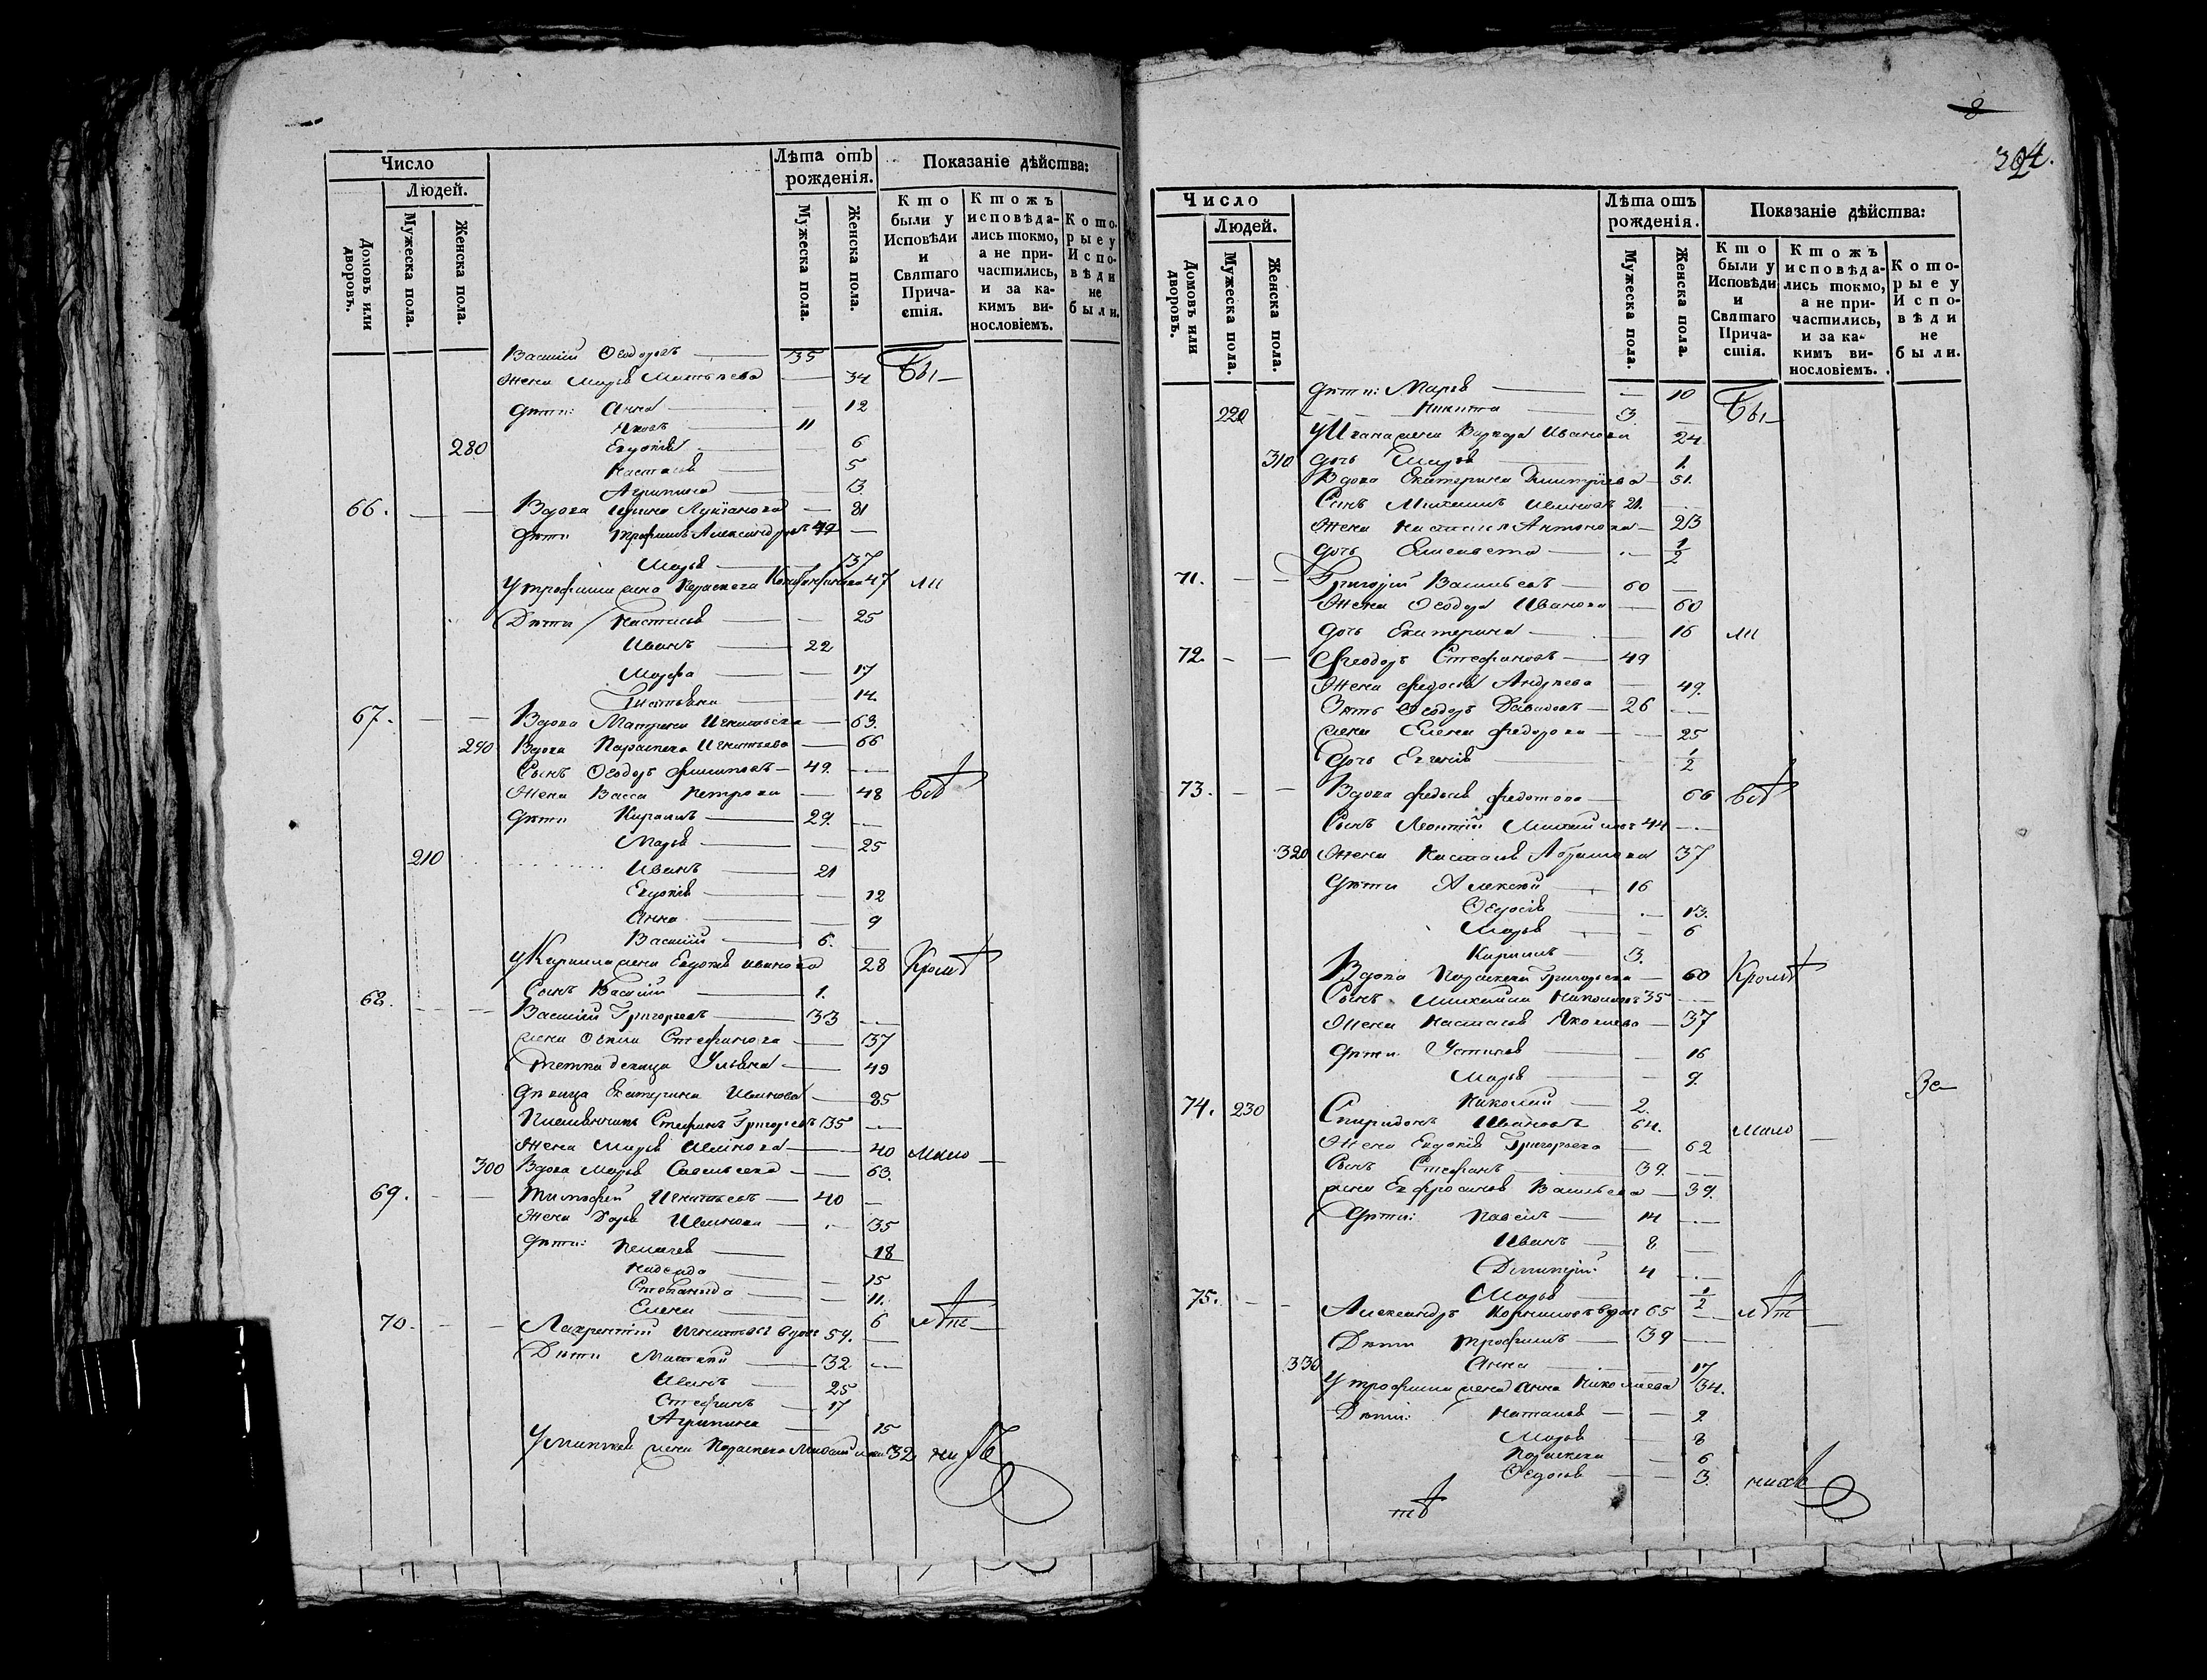 Число
Людей.
Домовъ или дворовъ.
Мужеска пола.
Женска пола.
Лѣта отъ рожденія.
Мужеска пола.
Женска пола.
Показаніе дѣйства:
Кто были у Исповѣди и Святаго Причастія.
Ктожъ исповѣдались токмо, а не причастились, и за какимъ винословіемъ.
Которые у Исповѣди не были.
Василій Ѳеодоровъ 35
Жена Марья Матвѣева 34 Бы
Дѣти: Анна 12
Яковъ 11
280 Евдокія 6
Настасья 5
Агрипина 3
66. Вдова Ирина 81
Дѣти Трофимъ Александровъ 49
Марья 37
У Трофима жена Параскева 47 ли
Дѣти Настасья 25
Иванъ 22
Марфа 17
Татьяна 14
67. Вдова Матрена Игнатьева 63.
290 Вдова Параскева Игнатьева 66
Сынъ Ѳеодоръ Филиповъ 49.
Жена Васса Петрова 48 всѣ
Дѣти Кирилъ 29.
Марья 25
210 Иванъ 21
Евдокія 12
Анна 9
Василій 6.
У Кирилла жена Евдокія Иванова 28 Кромѣ
Сынъ Василій 1.
68. Василій Григорьевъ 33
жена Стефанова 37
Тетка девица Ульяна 49
Дѣвица Екатерина Иванова 25
Племянникъ Стефанъ Григорьевъ 35
Жена Марья Иванова 40 мало
300 Вдова Марья Савельева 63.
69. Тимофей Игнатьевъ 40
Жена Дарья Иванова 35
Дѣти: Пелагея 18
Надежда 15
Степанида 11.
Елена 6 лѣт
70. Лаврентій Игнатьевъ вдовъ 54.
Дѣти Матвей 32
Иванъ 25
Стефанъ 17
Агрипина 15
У Матвея жена Параскева 32 нихъ
8
304.
Число
Людей.
Домовъ или дворовъ.
Мужеска пола.
Женска пола.
Лѣта отъ рожденія.
Мужеска пола.
Женска пола.
Показаніе дѣйства:
Кто были у Исповѣди и Святаго Причастія.
Ктожъ исповѣдались токмо, а не причастились, и за какимъ винословіемъ.
Которые у Исповѣди не были.
Дѣти: Марья 10
220 Никита 3. Бы
У Ивана жена Варвара Иванова 24
310 Дочь Марья 1.
Вдова Екатерина Димитріева 51.
Сынъ Михаилъ Ивановъ 21.
Жена Настасья Антонова 23
Дочь Елисавета 1/2
71. Григорій Васильевъ 60
Жена Ѳеодора Иванова 60
Дочь Екатерина 16 ли
72. Феодоръ Стефановъ 49
Жена Федосья Андреева 49.
Зять Ѳеодоръ Давидовъ 26
жена Елена Федорова 25
Дочь Евгенія 1/2
73. Вдова Федосья Федотова 66 всѣ
Сынъ Леонтій Михайловъ 44
320 Жена Настасья Абрамова 37
Дѣти Алексей 16
Ѳедосья 13.
Марья 6
Кирилъ 3.
Вдова Параскева Григорьева 60 Кромѣ
Сынъ Михаила Николаевъ 35
Жена Настасья Яковлева 37
Дѣти Устинья 16
Марья 9. За
230 Николай 2.
74. Спиридонъ Ивановъ 64. мало
Жена Евдокія Григорьева 62
Сынъ Стефанъ 39.
жена Евфросинья Васильева 39.
Дѣти: Павелъ 14
Иванъ 8
Димитрій 4
Марья 1/2
75. Александръ Корниловъ вдовъ 65 лѣт
Дѣти Трофимъ 39
330 Анна 17
У Трофима жена Анна Николаева 34.
Дѣти: Наталья 9
Марья 8
Параскева 6
Ѳедосья 3. нихъ
тѣ